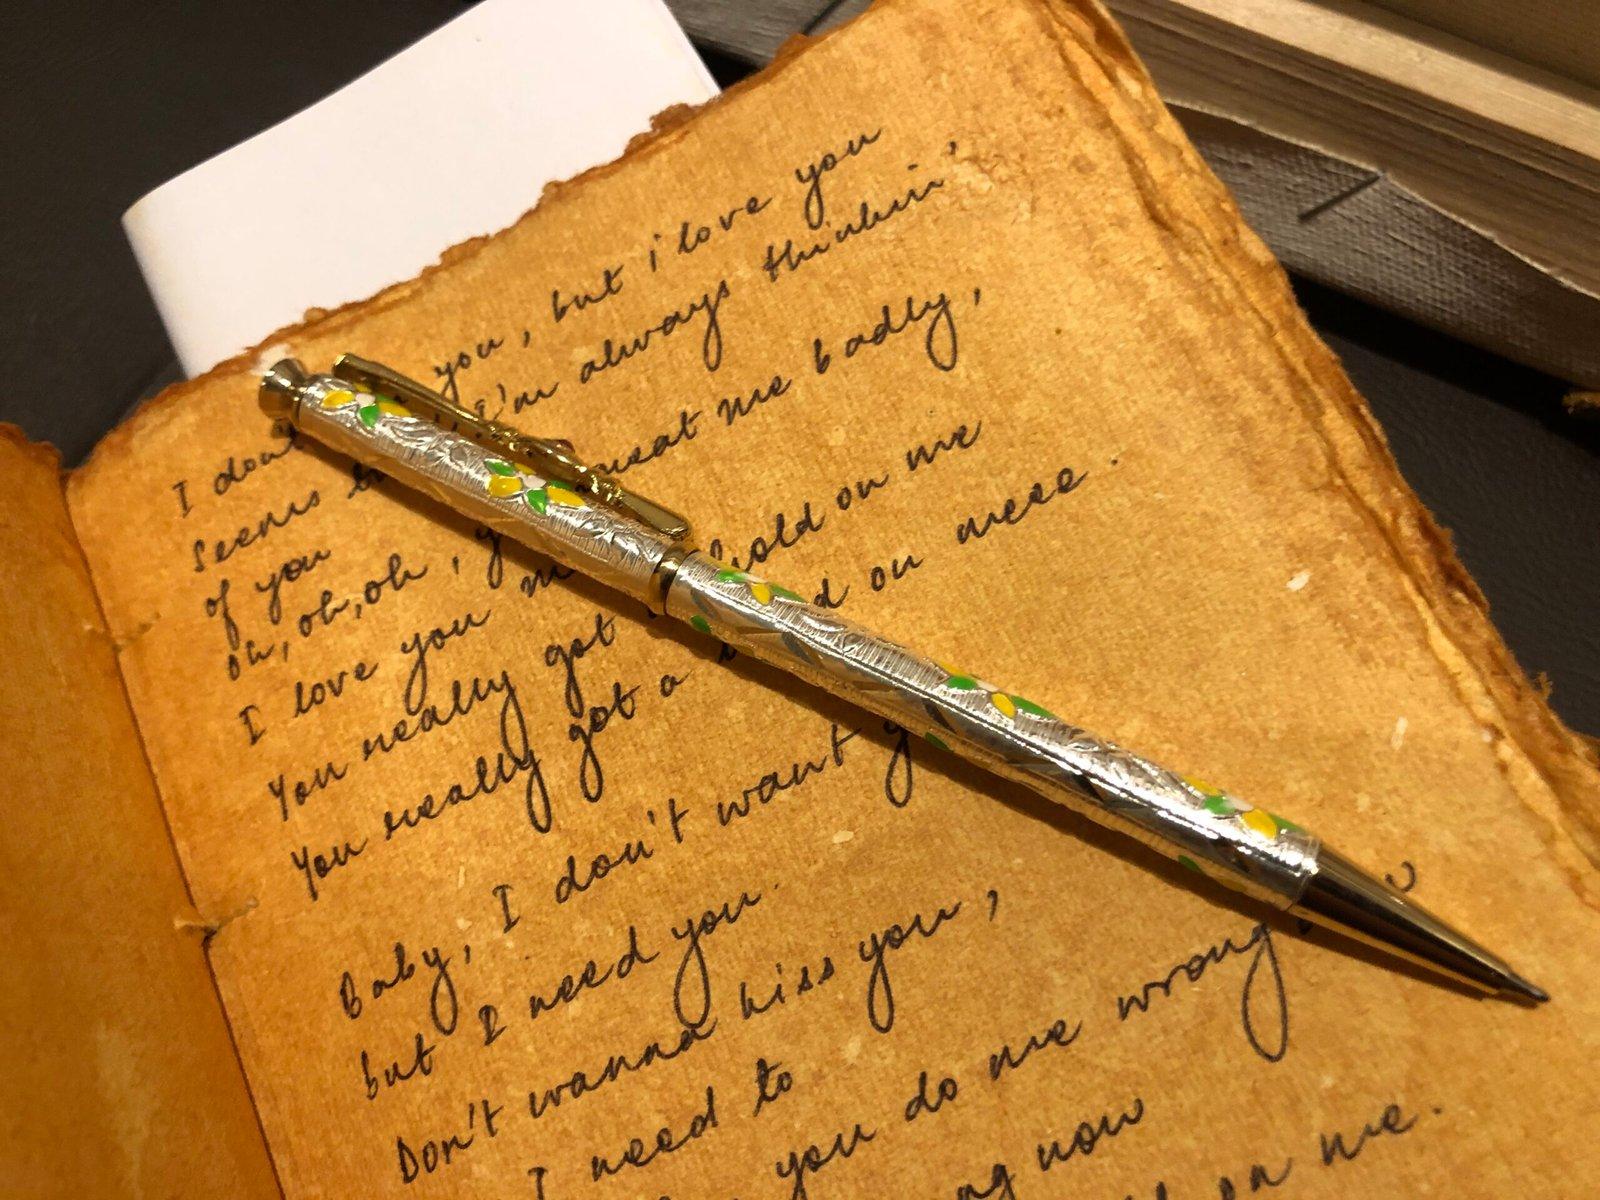 I don't you, but i love you
seems I'm always thinkin',
of you
oh, oh, oh, treat me badly,
I love you hold on me
You really got
You really got a on meee.
Baby, I don't want
but I need you.
Don't wanna kiss you,
I need to
you do me wrong
now
on me.